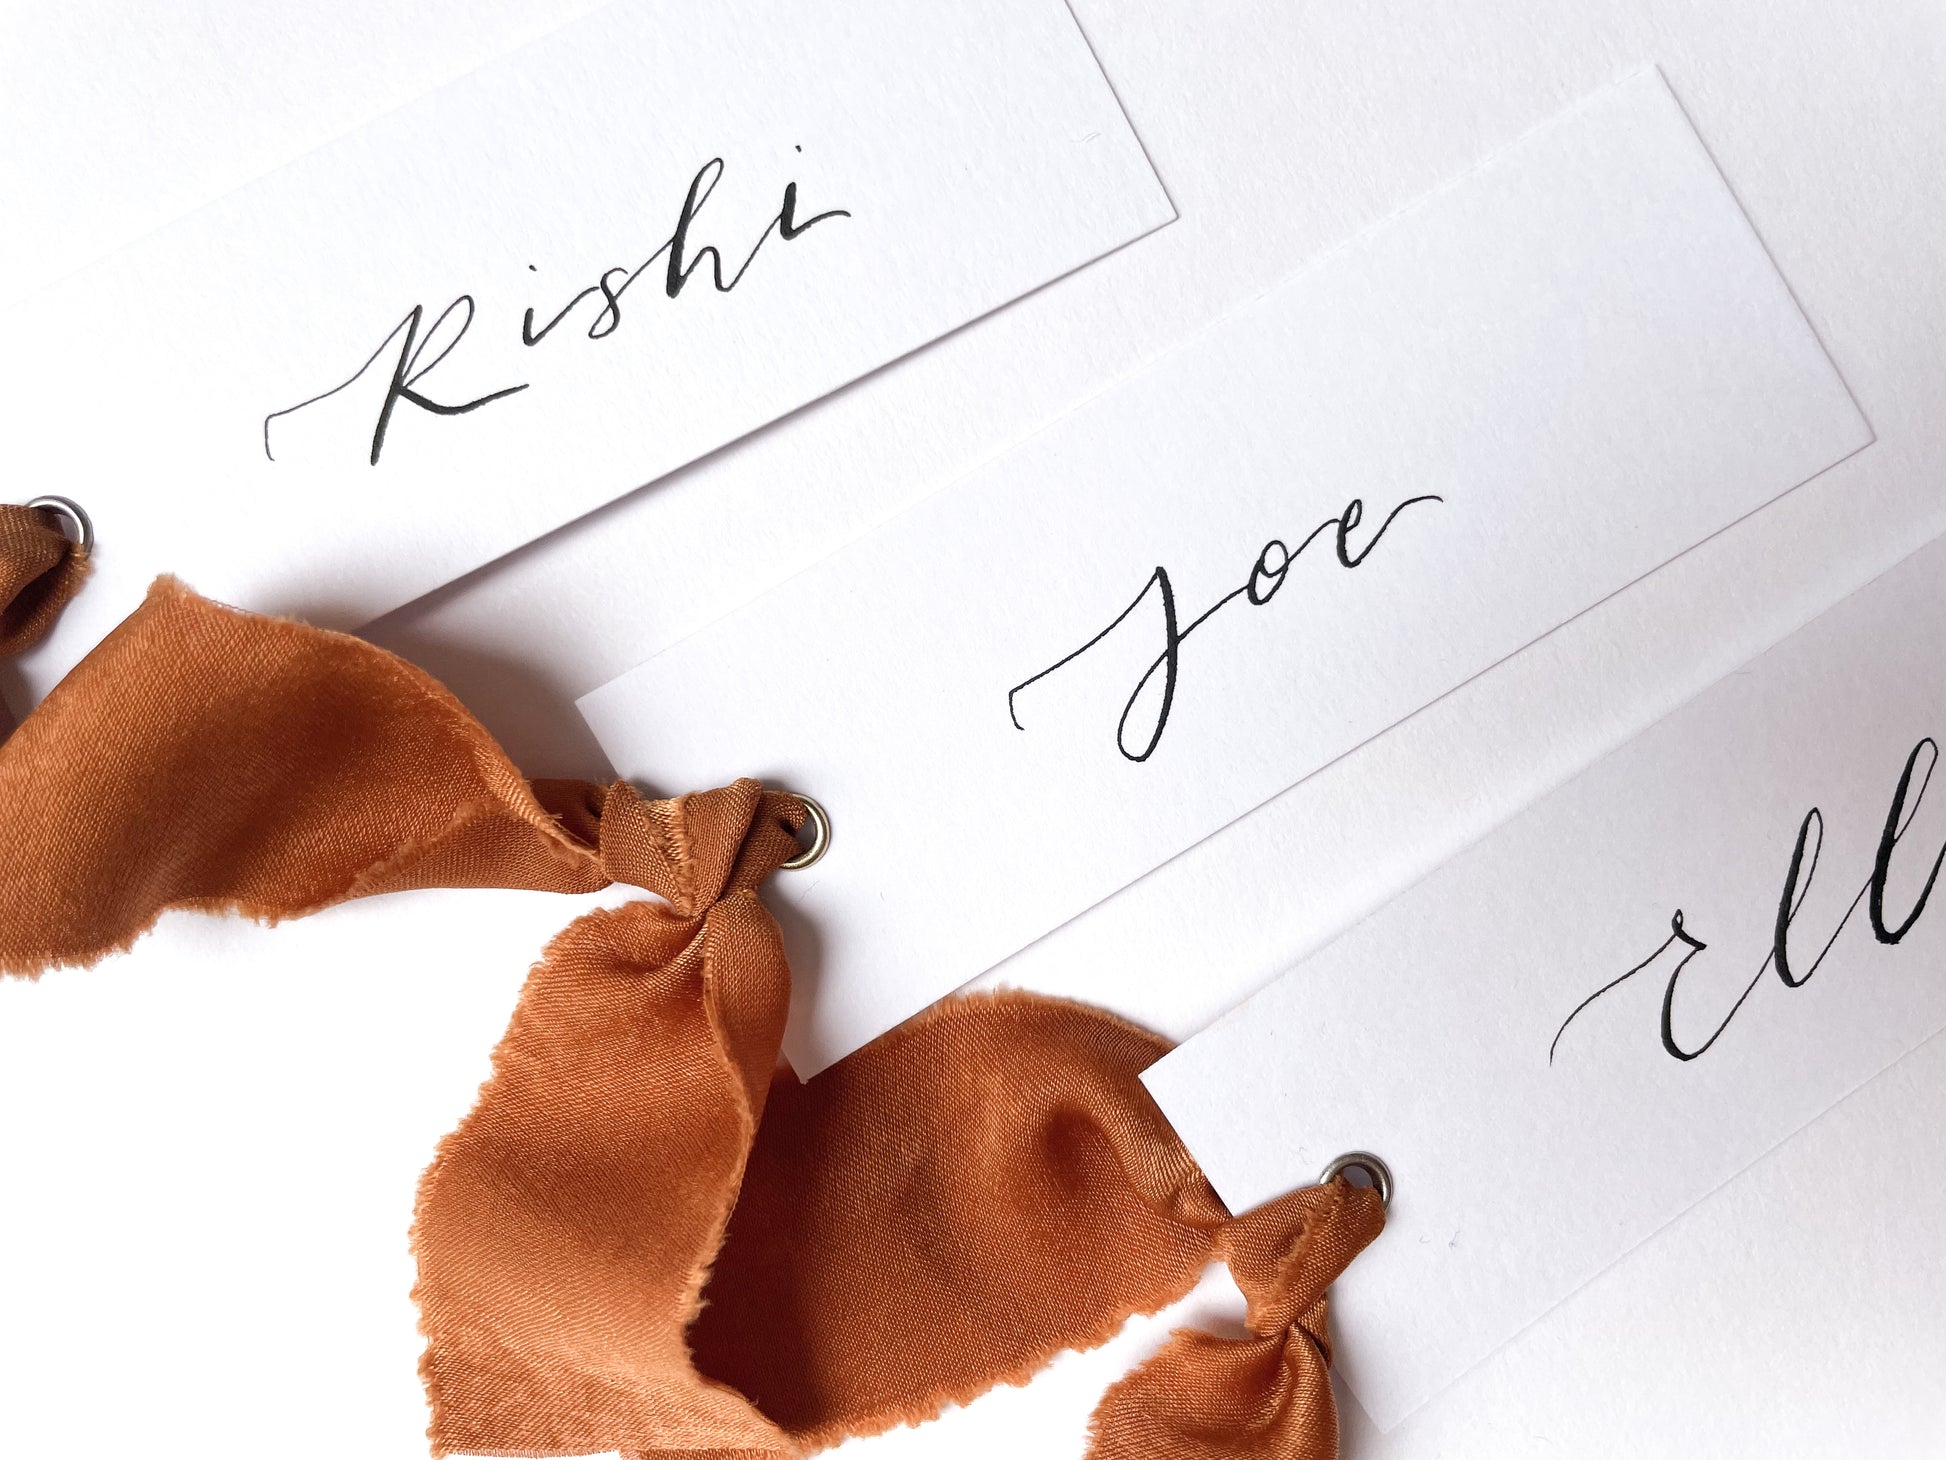 Rishi
Joe
Ell